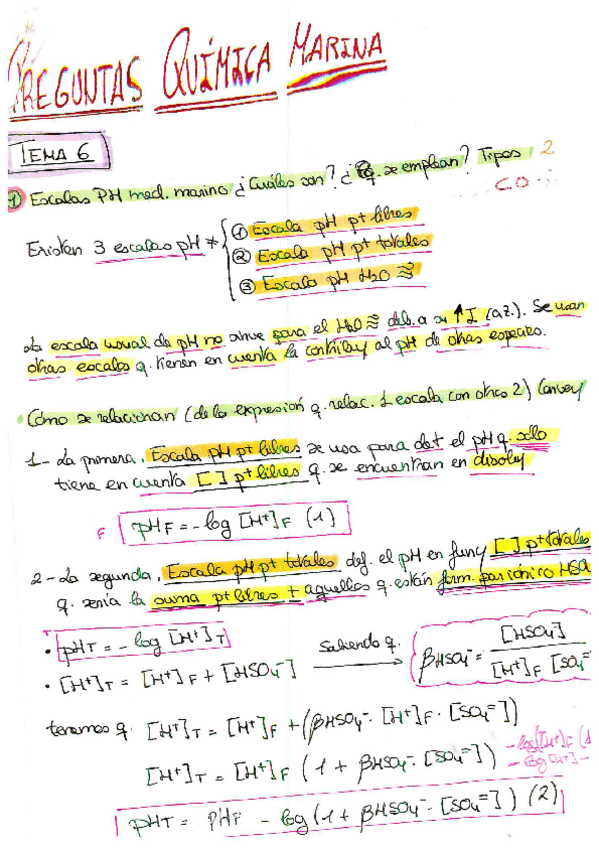 PREGUNTAS QUÍMICA MARINA
TEMA 6
1) Escalas PH med. marino ¿Cuáles son? ¿ q. se emplean? Tipos 2
CO
Existen 3 escalas pH
① Escala pH p+ libres
② Escala pH p+ totales
③ Escala pH H2O ≈
La escala usual de pH no sirve para el H2O ≈ deb. a su ↑ I (a.z.). Se usan
otras escalas q. tienen en cuenta la contribuy al pH de otras especies.
• Cómo se relacionan (de la expresión q. relac. 1 escala con otras 2) (
1- La primera, Escala pH p+ libres se usa para det el pH q. sólo
tiene en cuenta [ ] p+ libres q. se encuentran en disoluy
F pHF = -log [H+]F (1)
2- La segunda, Escala pH p+ totales def. el pH en funy [ ] p+ totales
q. sería la suma p+ libres + aquellos q. están form. par iónico HSO4
• pHT = -log [H+]T
• [H+]T = [H+]F + [HSO4-]
Sabiendo q. → βHSO4- = [HSO4-] / [H+]F [SO4=
tenemos q. [H+]T = [H+]F + (βHSO4- · [H+]F · [SO4=])
[H+]T = [H+]F (1 + βHSO4- · [SO4=])
-log[H+]F (1
-log [H+] -
pHT = pHF - log (1 + βHSO4- · [SO4=]) (2)